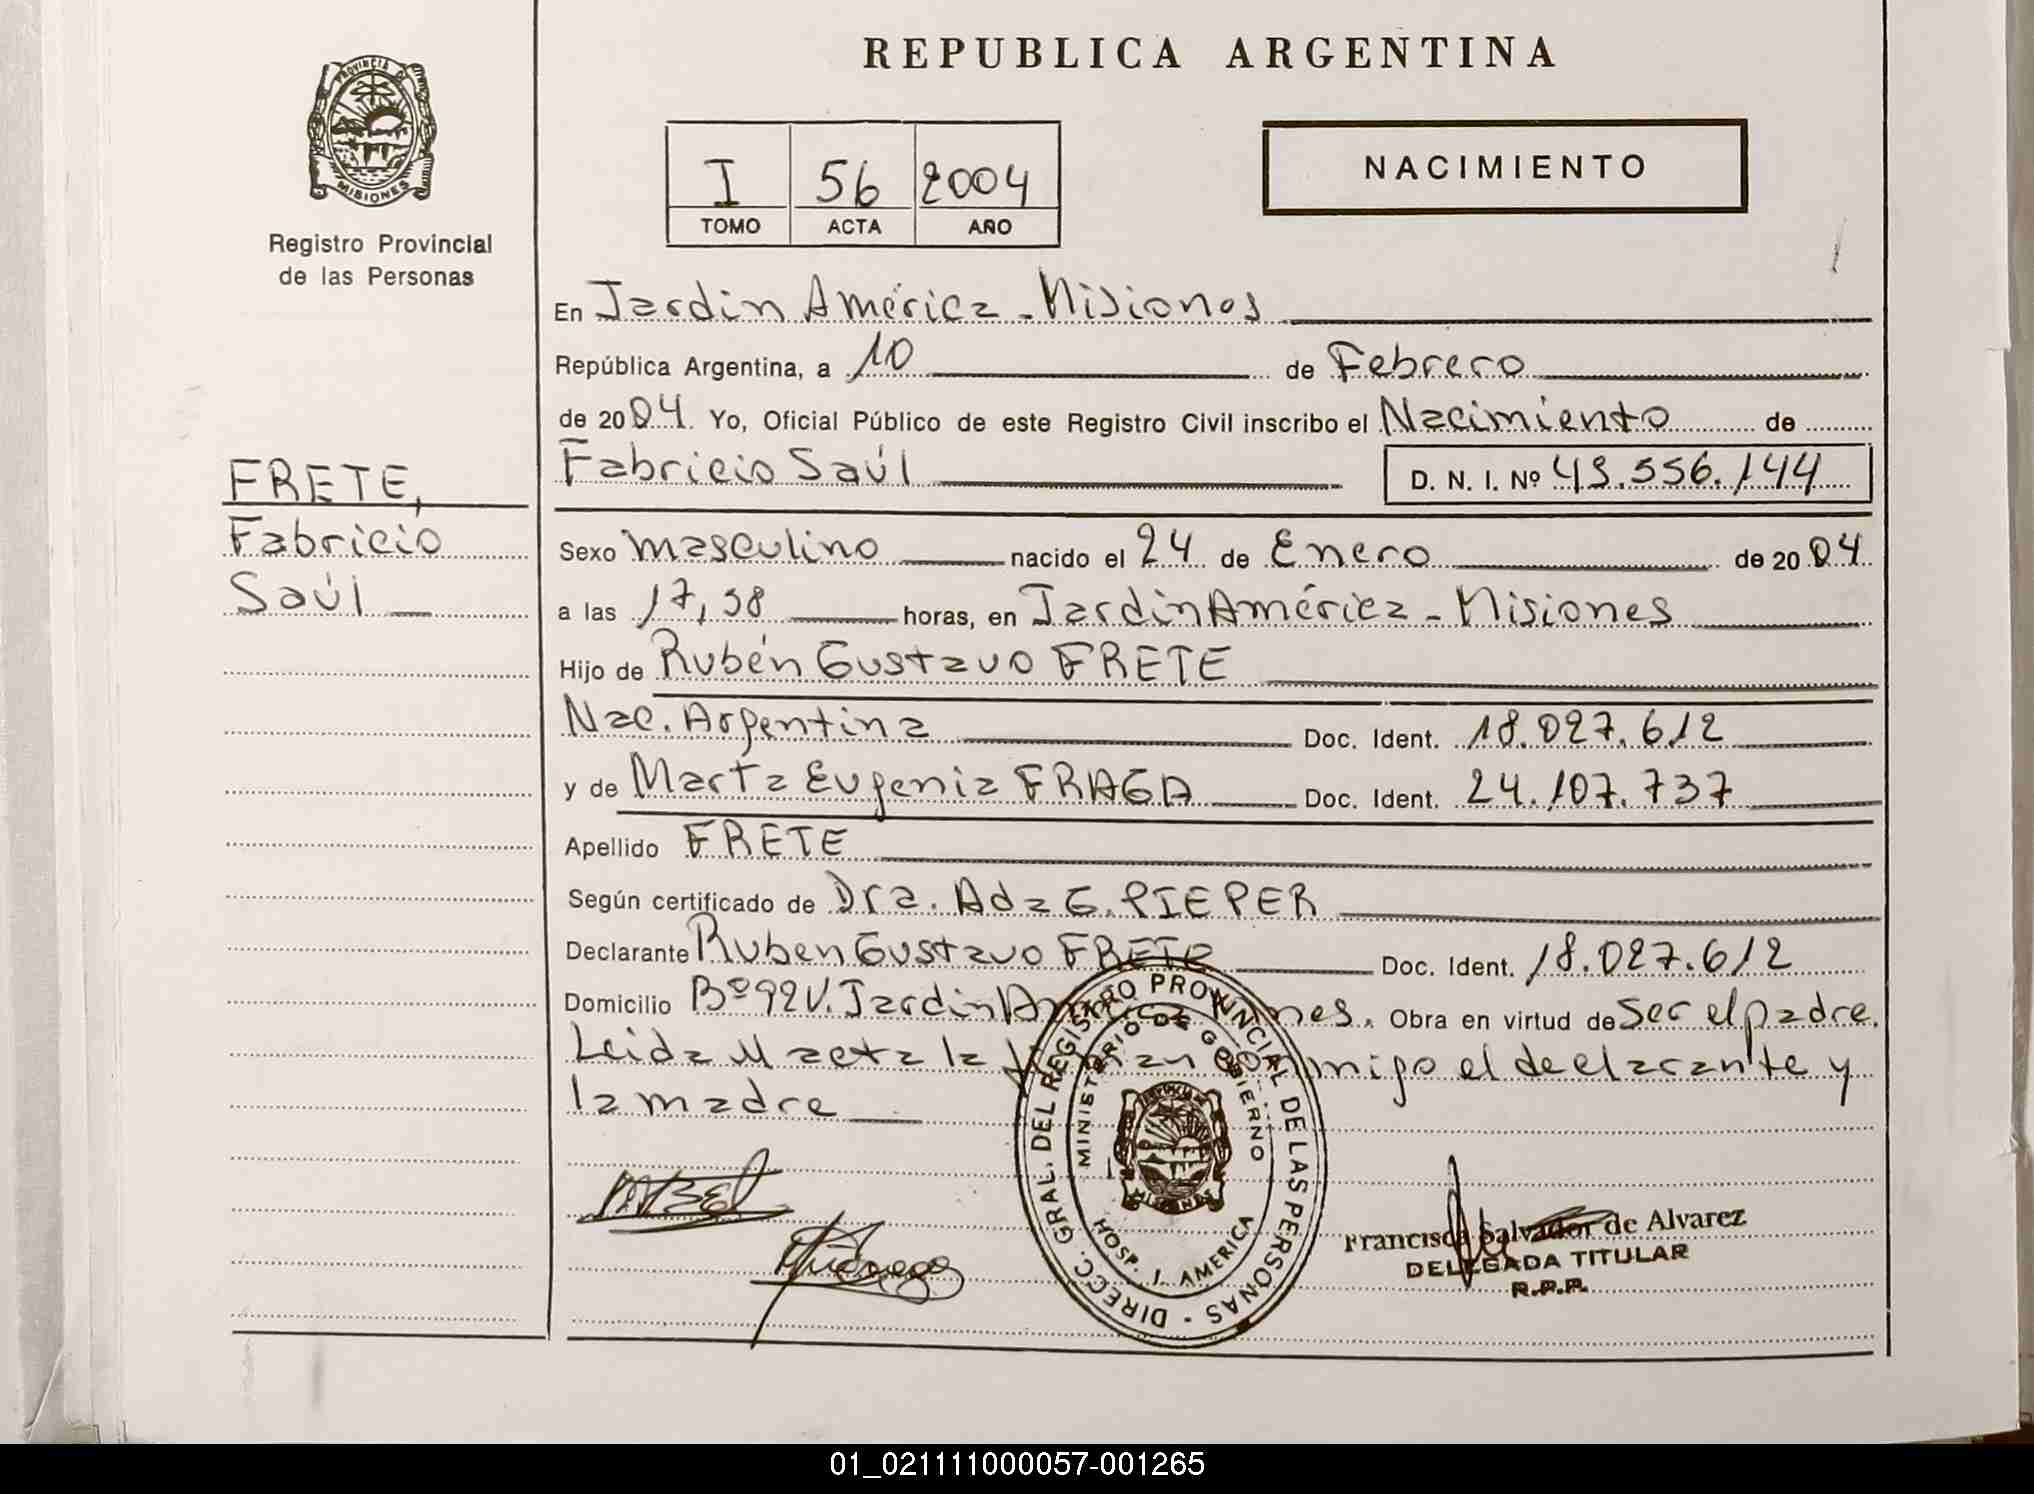 REPUBLICA ARGENTINA
PROVINCIA DE
MISIONES
Registro Provincial
de las Personas
I 56 2004
TOMO ACTA AÑO
NACIMIENTO
En Jardin América - Misiones
República Argentina, a 10 de Febrero
de 2004. Yo, Oficial Público de este Registro Civil inscribo el Nacimiento de
Fabricio Saúl D. N. I. Nº 45.556.144
FRETE,
Fabricio
Saúl
Sexo masculino nacido el 24 de Enero de 2004
a las 17,38 horas, en Jardin América - Misiones
Hijo de Rubén Gustavo FRETE
Nac. Argentina Doc. Ident. 18.027.612
y de Marta Eugenia FRAGA Doc. Ident. 24.107.737
Apellido FRETE
Según certificado de Dra. Ada G. PIEPER
Declarante Ruben Gustavo FRETE Doc. Ident. 18.027.612
Domicilio Bº 92V. Jardin América Obra en virtud de Ser el padre.
Leida el acta la firman conmigo el declarante y
la madre
DIRECC. GRAL. DEL REGISTRO PROVINCIAL DE LAS PERSONAS -
MINISTERIO DE GOBIERNO
HOSP. J. AMERICA
MISIONES
Francisca Salvador de Alvarez
DELEGADA TITULAR
R.P.P.
01_021111000057-001265